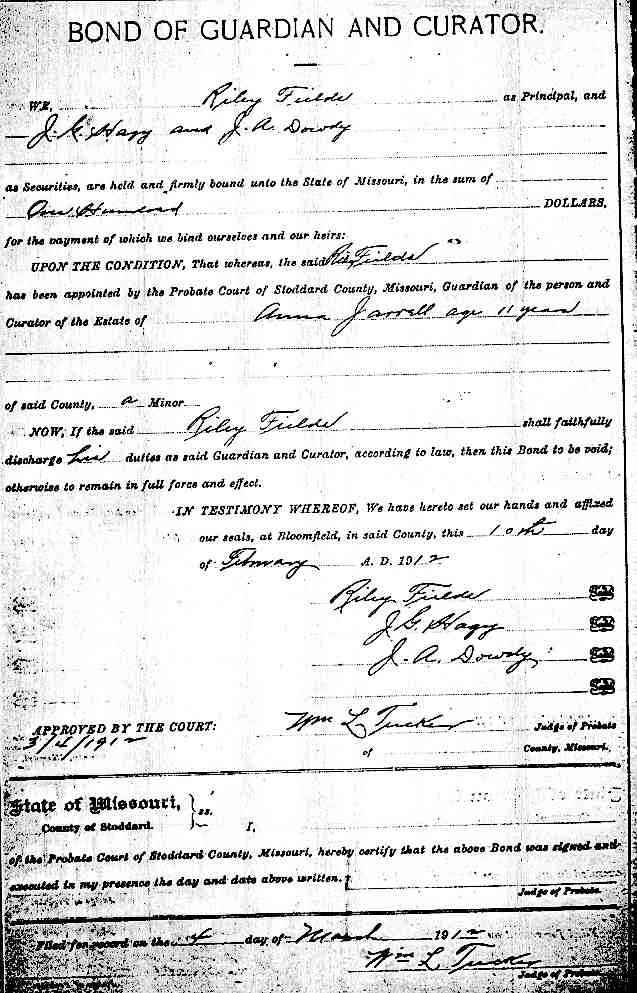 BOND OF GUARDIAN AND CURATOR.
WE, Riley Fields as Principal, and
J. G. Hagy and J. A. Dowdy
as Securities, are held and firmly bound unto the State of Missouri, in the sum of
One Hundred DOLLARS,
for the payment of which we bind ourselves and our heirs:
UPON THE CONDITION, That whereas, the said Riley Fields
has been appointed by the Probate Court of Stoddard County, Missouri, Guardian of the person and
Curator of the Estate of Anna Jarrell age 11 years
of said County, a Minor
NOW, If the said Riley Fields shall faithfully
discharge his duties as said Guardian and Curator, according to law, then this Bond to be void;
otherwise to remain in full force and effect.
IN TESTIMONY WHEREOF, We have hereto set our hands and affixed
our seals, at Bloomfield, in said County, this 10th day
of February A. D. 1912
Riley Fields
J. G. Hagy
J. A. Dowdy
APPROVED BY THE COURT: Wm L Tucker Judge of Probate
3/4/1912 of County, Missouri.
State of Missouri, } ss.
County of Stoddard. I,
of the Probate Court of Stoddard County, Missouri, hereby certify that the above Bond was signed and
executed in my presence the day and date above written.
Judge of Probate.
Filed for record on the 4 day of March 1912
Wm L Tucker
Judge of Probate.